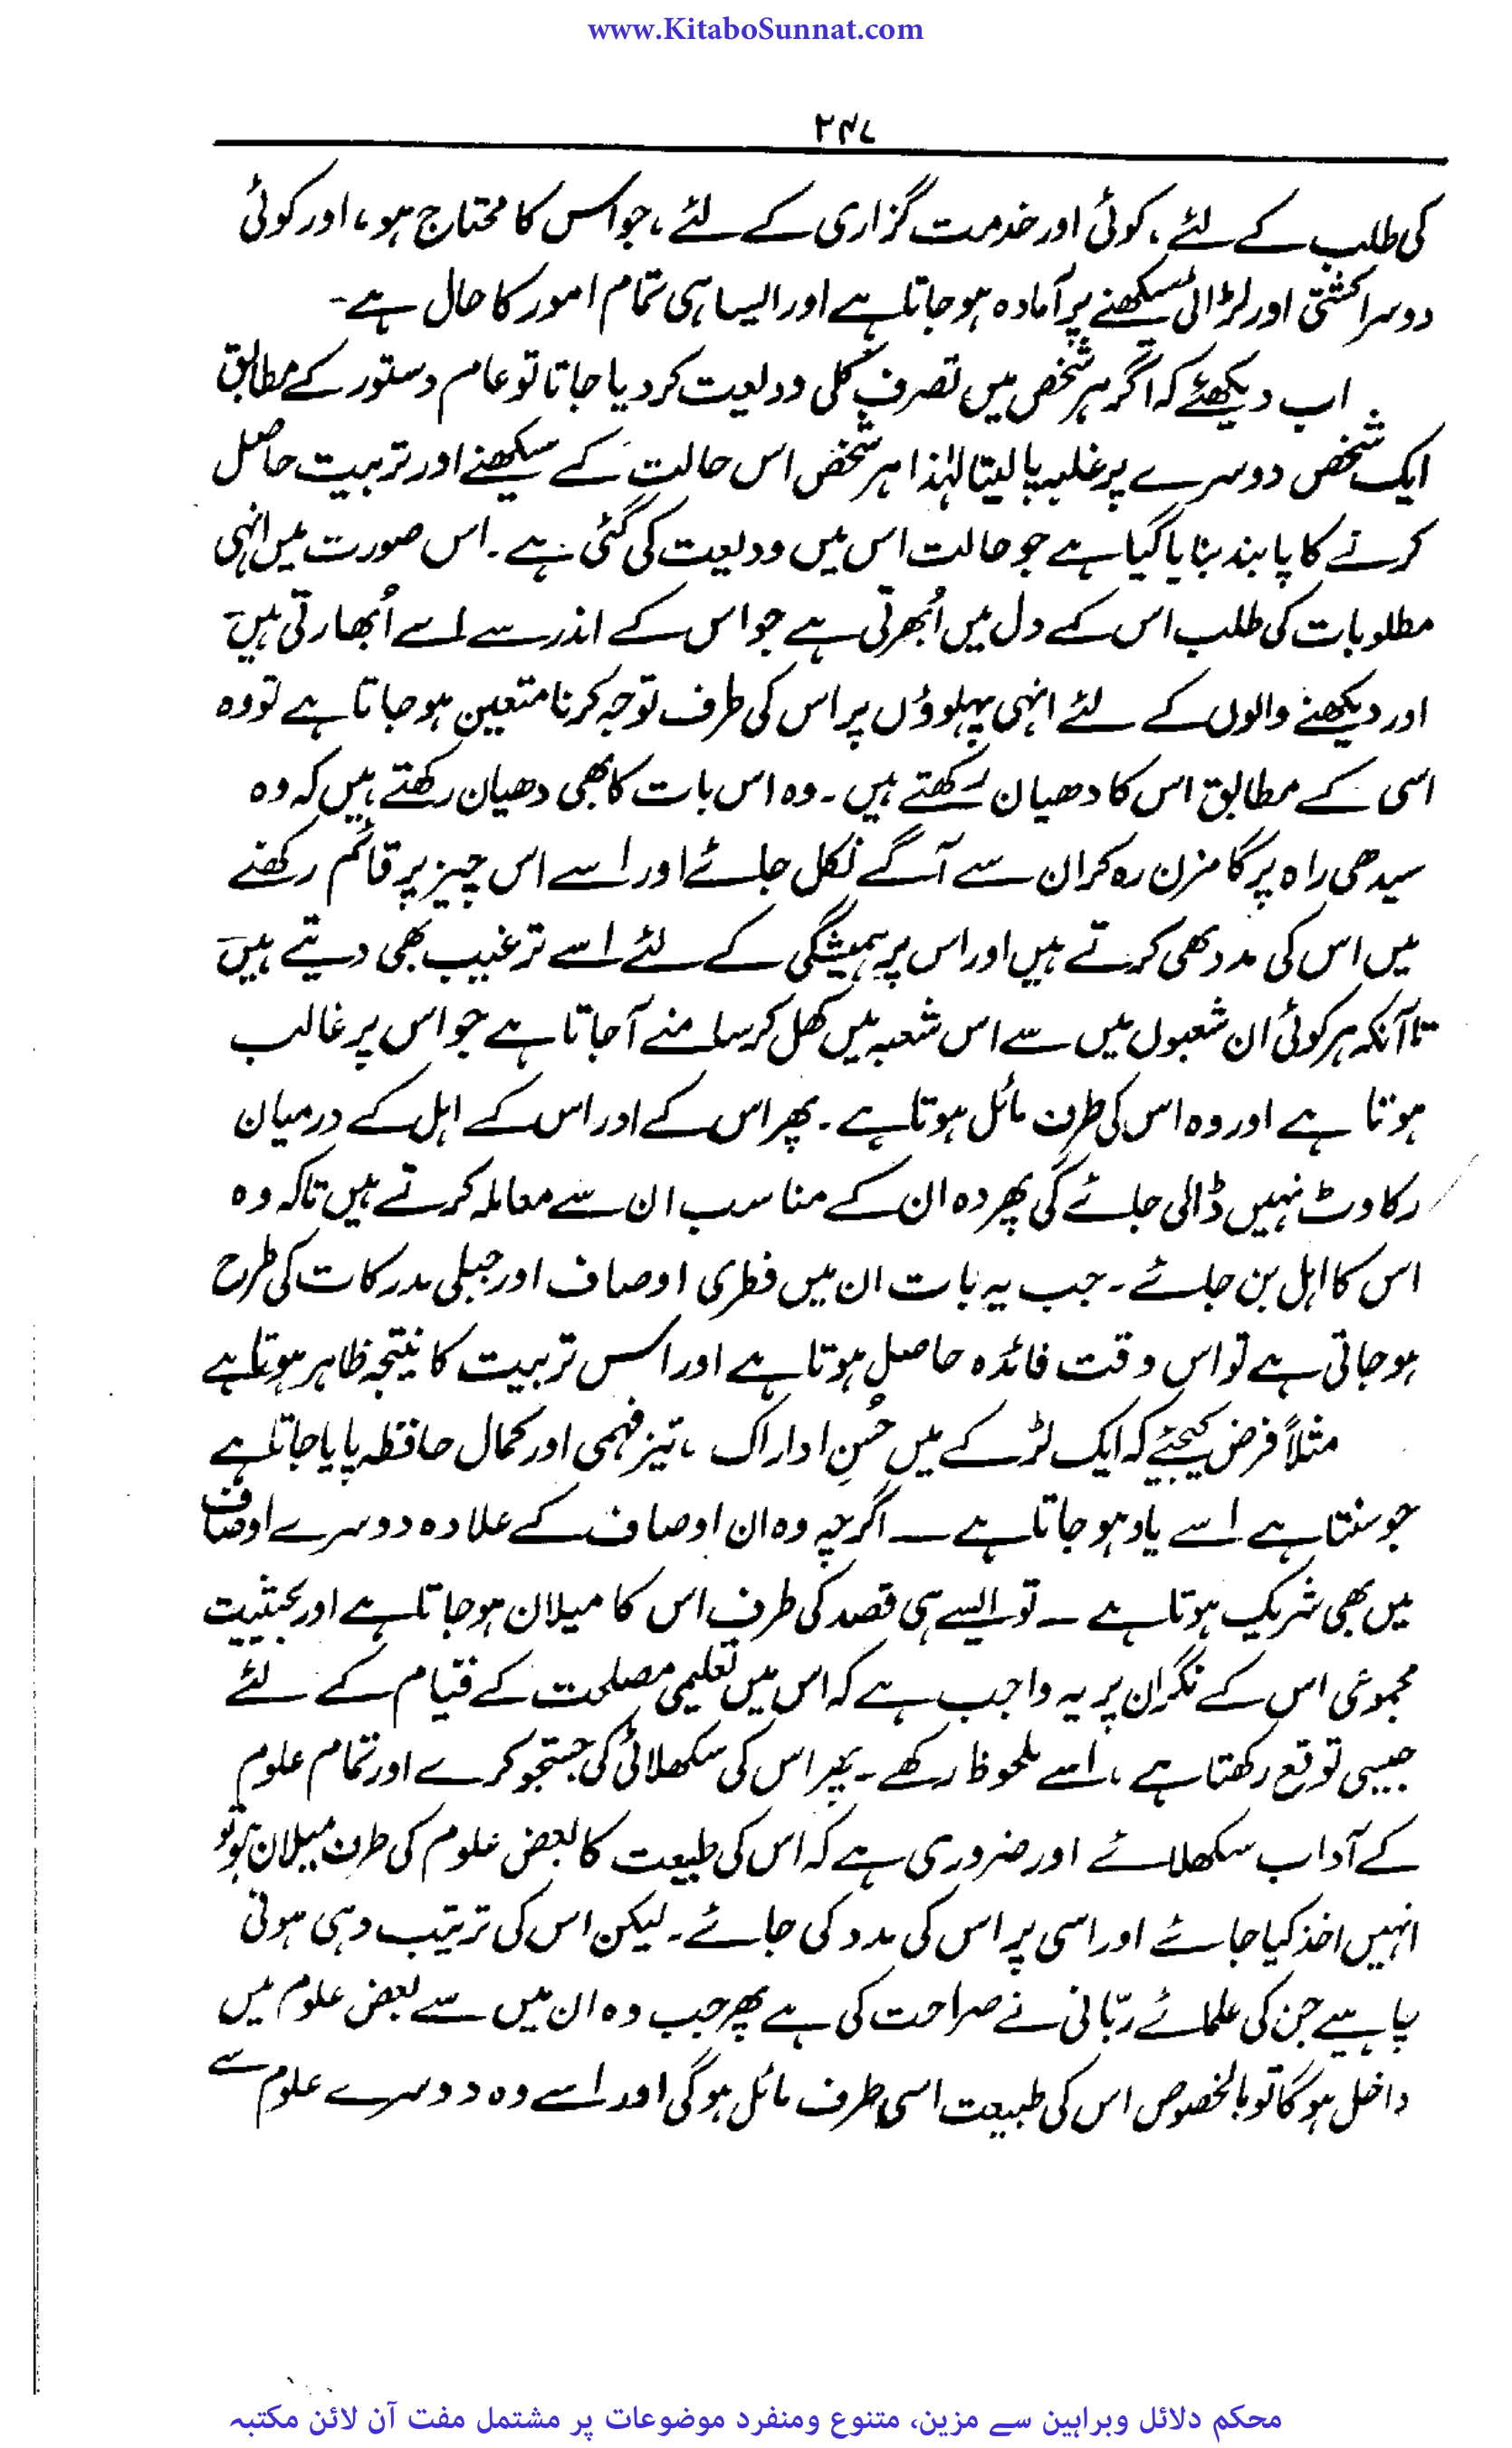 www.KitaboSunnat.com
۲۴۷
کی طلب کے لئے، کوئی اور خدمت گزاری کے لئے، جو اس کا محتاج ہو، اور کوئی
دوسرا کشتی اور لڑائی سیکھنے پر آمادہ ہو جاتا ہے اور ایسا ہی تمام امور کا حال ہے۔
اب دیکھئے کہ اگر ہر شخص میں تصرفِ کلی ودیعت کر دیا جاتا تو عام دستور کے مطابق
ایک شخص دوسرے پر غلبہ پا لیتا لہٰذا ہر شخص اس حالت کے سیکھنے اور تربیت حاصل
کرنے کا پابند بنایا گیا ہے جو حالت اس میں ودیعت کی گئی ہے۔ اس صورت میں انہی
مطلوبات کی طلب اس کے دل میں اُبھرتی ہے جو اس کے اندر سے اسے اُبھارتی ہیں۔
اور دیکھنے والوں کے لئے انہی پہلوؤں پر اس کی طرف توجہ کرنا متعین ہو جاتا ہے تو وہ
اسی کے مطابق اس کا دھیان رکھتے ہیں۔ وہ اس بات کا بھی دھیان رکھتے ہیں کہ وہ
سیدھی راہ پر گامزن رہ کر ان سے آگے نکل جائے اور اسے اس چیز پر قائم رکھنے
میں اس کی مدد بھی کرتے ہیں اور اس پر ہمیشگی کے لئے اسے ترغیب بھی دیتے ہیں۔
تا آنکہ ہر کوئی ان شعبوں میں سے اس شعبہ میں کھل کر سامنے آ جاتا ہے جو اس پر غالب
ہوتا ہے اور وہ اس کی طرف مائل ہوتا ہے۔ پھر اس کے اور اس کے اہل کے درمیان
رکاوٹ نہیں ڈالی جائے گی پھر وہ ان کے مناسب ان سے معاملہ کرتے ہیں تاکہ وہ
اس کا اہل بن جائے۔ جب یہ بات ان میں فطری اوصاف اور جبلی مدرکات کی طرح
ہو جاتی ہے تو اس وقت فائدہ حاصل ہوتا ہے اور اس تربیت کا نتیجہ ظاہر ہوتا ہے
مثلاً فرض کیجئے کہ ایک لڑکے میں حُسنِ ادارک، تیز فہمی اور کمال حافظہ پایا جاتا ہے
جو سنتا ہے اسے یاد ہو جاتا ہے — اگرچہ وہ ان اوصاف کے علاوہ دوسرے اوصاف
میں بھی شریک ہوتا ہے — تو ایسے ہی قصد کی طرف اس کا میلان ہو جاتا ہے اور بحیثیت
مجموعی اس کے نگران پر یہ واجب ہے کہ اس میں تعلیمی مصلحت کے قیام کے لئے
جیسی توقع رکھتا ہے، اسے ملحوظ رکھے۔ پھر اس کی سکھلائی کی جستجو کرے اور تمام علوم
کے آداب سکھلائے اور ضروری ہے کہ اس کی طبیعت کا بعض علوم کی طرف میلان ہو تو
انہیں اخذ کیا جائے اور اسی پر اس کی مدد کی جائے۔ لیکن اس کی ترتیب وہی ہونی
چاہیے جن کی علمائے ربّانی نے صراحت کی ہے پھر جب وہ ان میں سے بعض علوم میں
داخل ہو گا تو بالخصوص اس کی طبیعت اسی طرف مائل ہو گی اور اسے وہ دوسرے علوم سے
محکم دلائل وبراہین سے مزین، متنوع ومنفرد موضوعات پر مشتمل مفت آن لائن مکتبہ